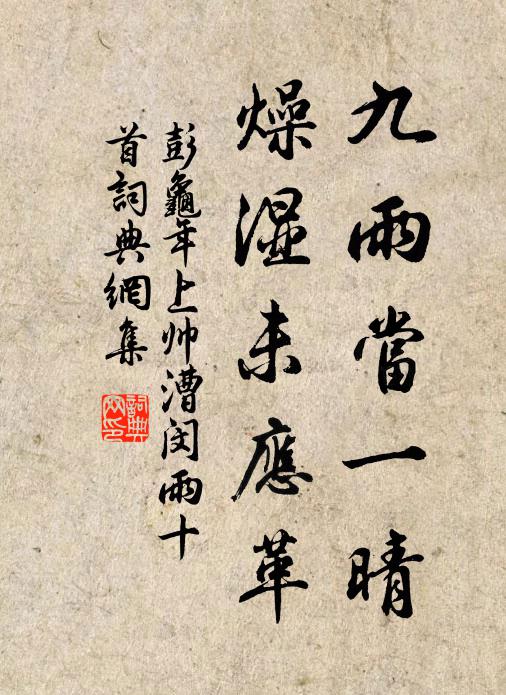 九雨當一晴
燥湿未應革
彭龜年上帅漕閔雨十
首詞典網集
詞典網印